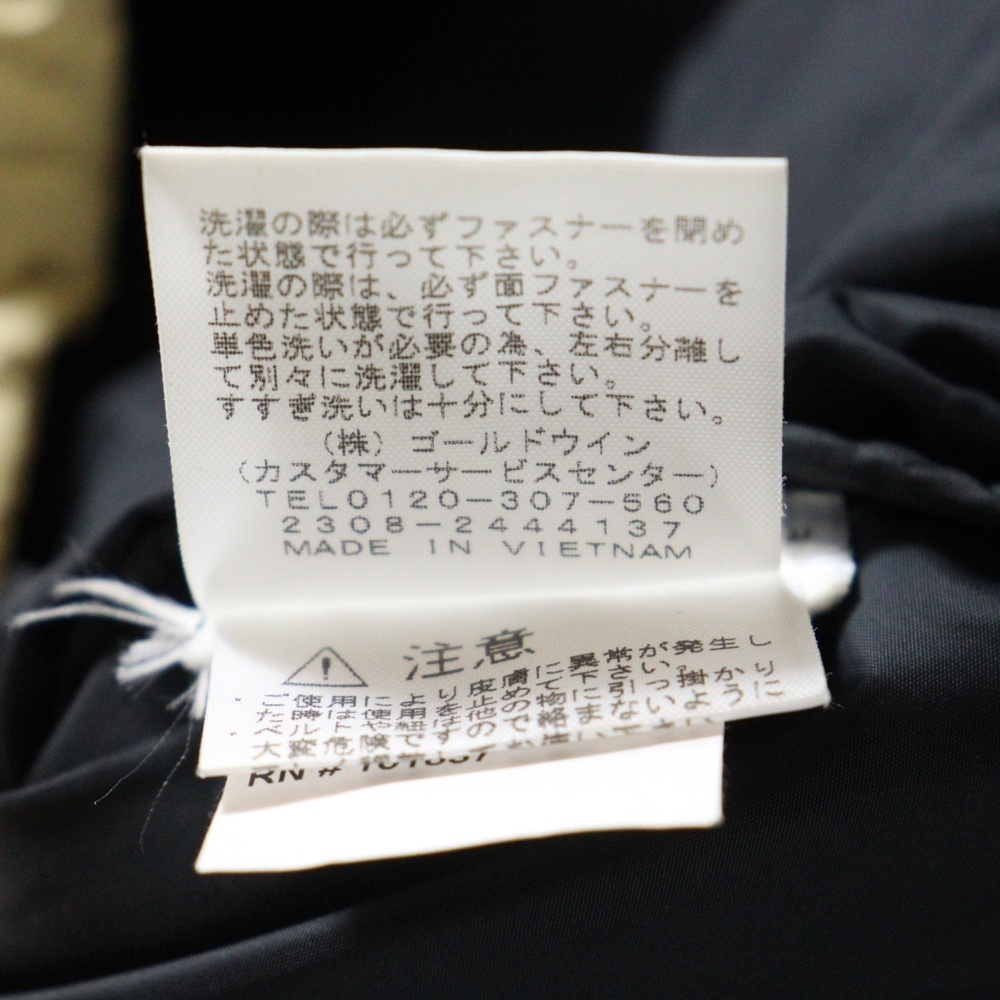 洗濯の際は必ずファスナーを閉め
た状態で行って下さい。
洗濯の際は、必ず面ファスナーを
止めた状態で行って下さい。
単色洗いが必要の為、左右分離し
て別々に洗濯して下さい。
すすぎ洗いは十分にして下さい。
(株) ゴールドウイン
(カスタマーサービスセンター)
TEL0120-307-560
2308-2444137
MADE IN VIETNAM
注意
・ご使用により皮膚に異常が発生し
た時は使用を止めて下さい。
・ベルトや紐は他の物に引っ掛かり
大変危険ですので絡まないように
RN #